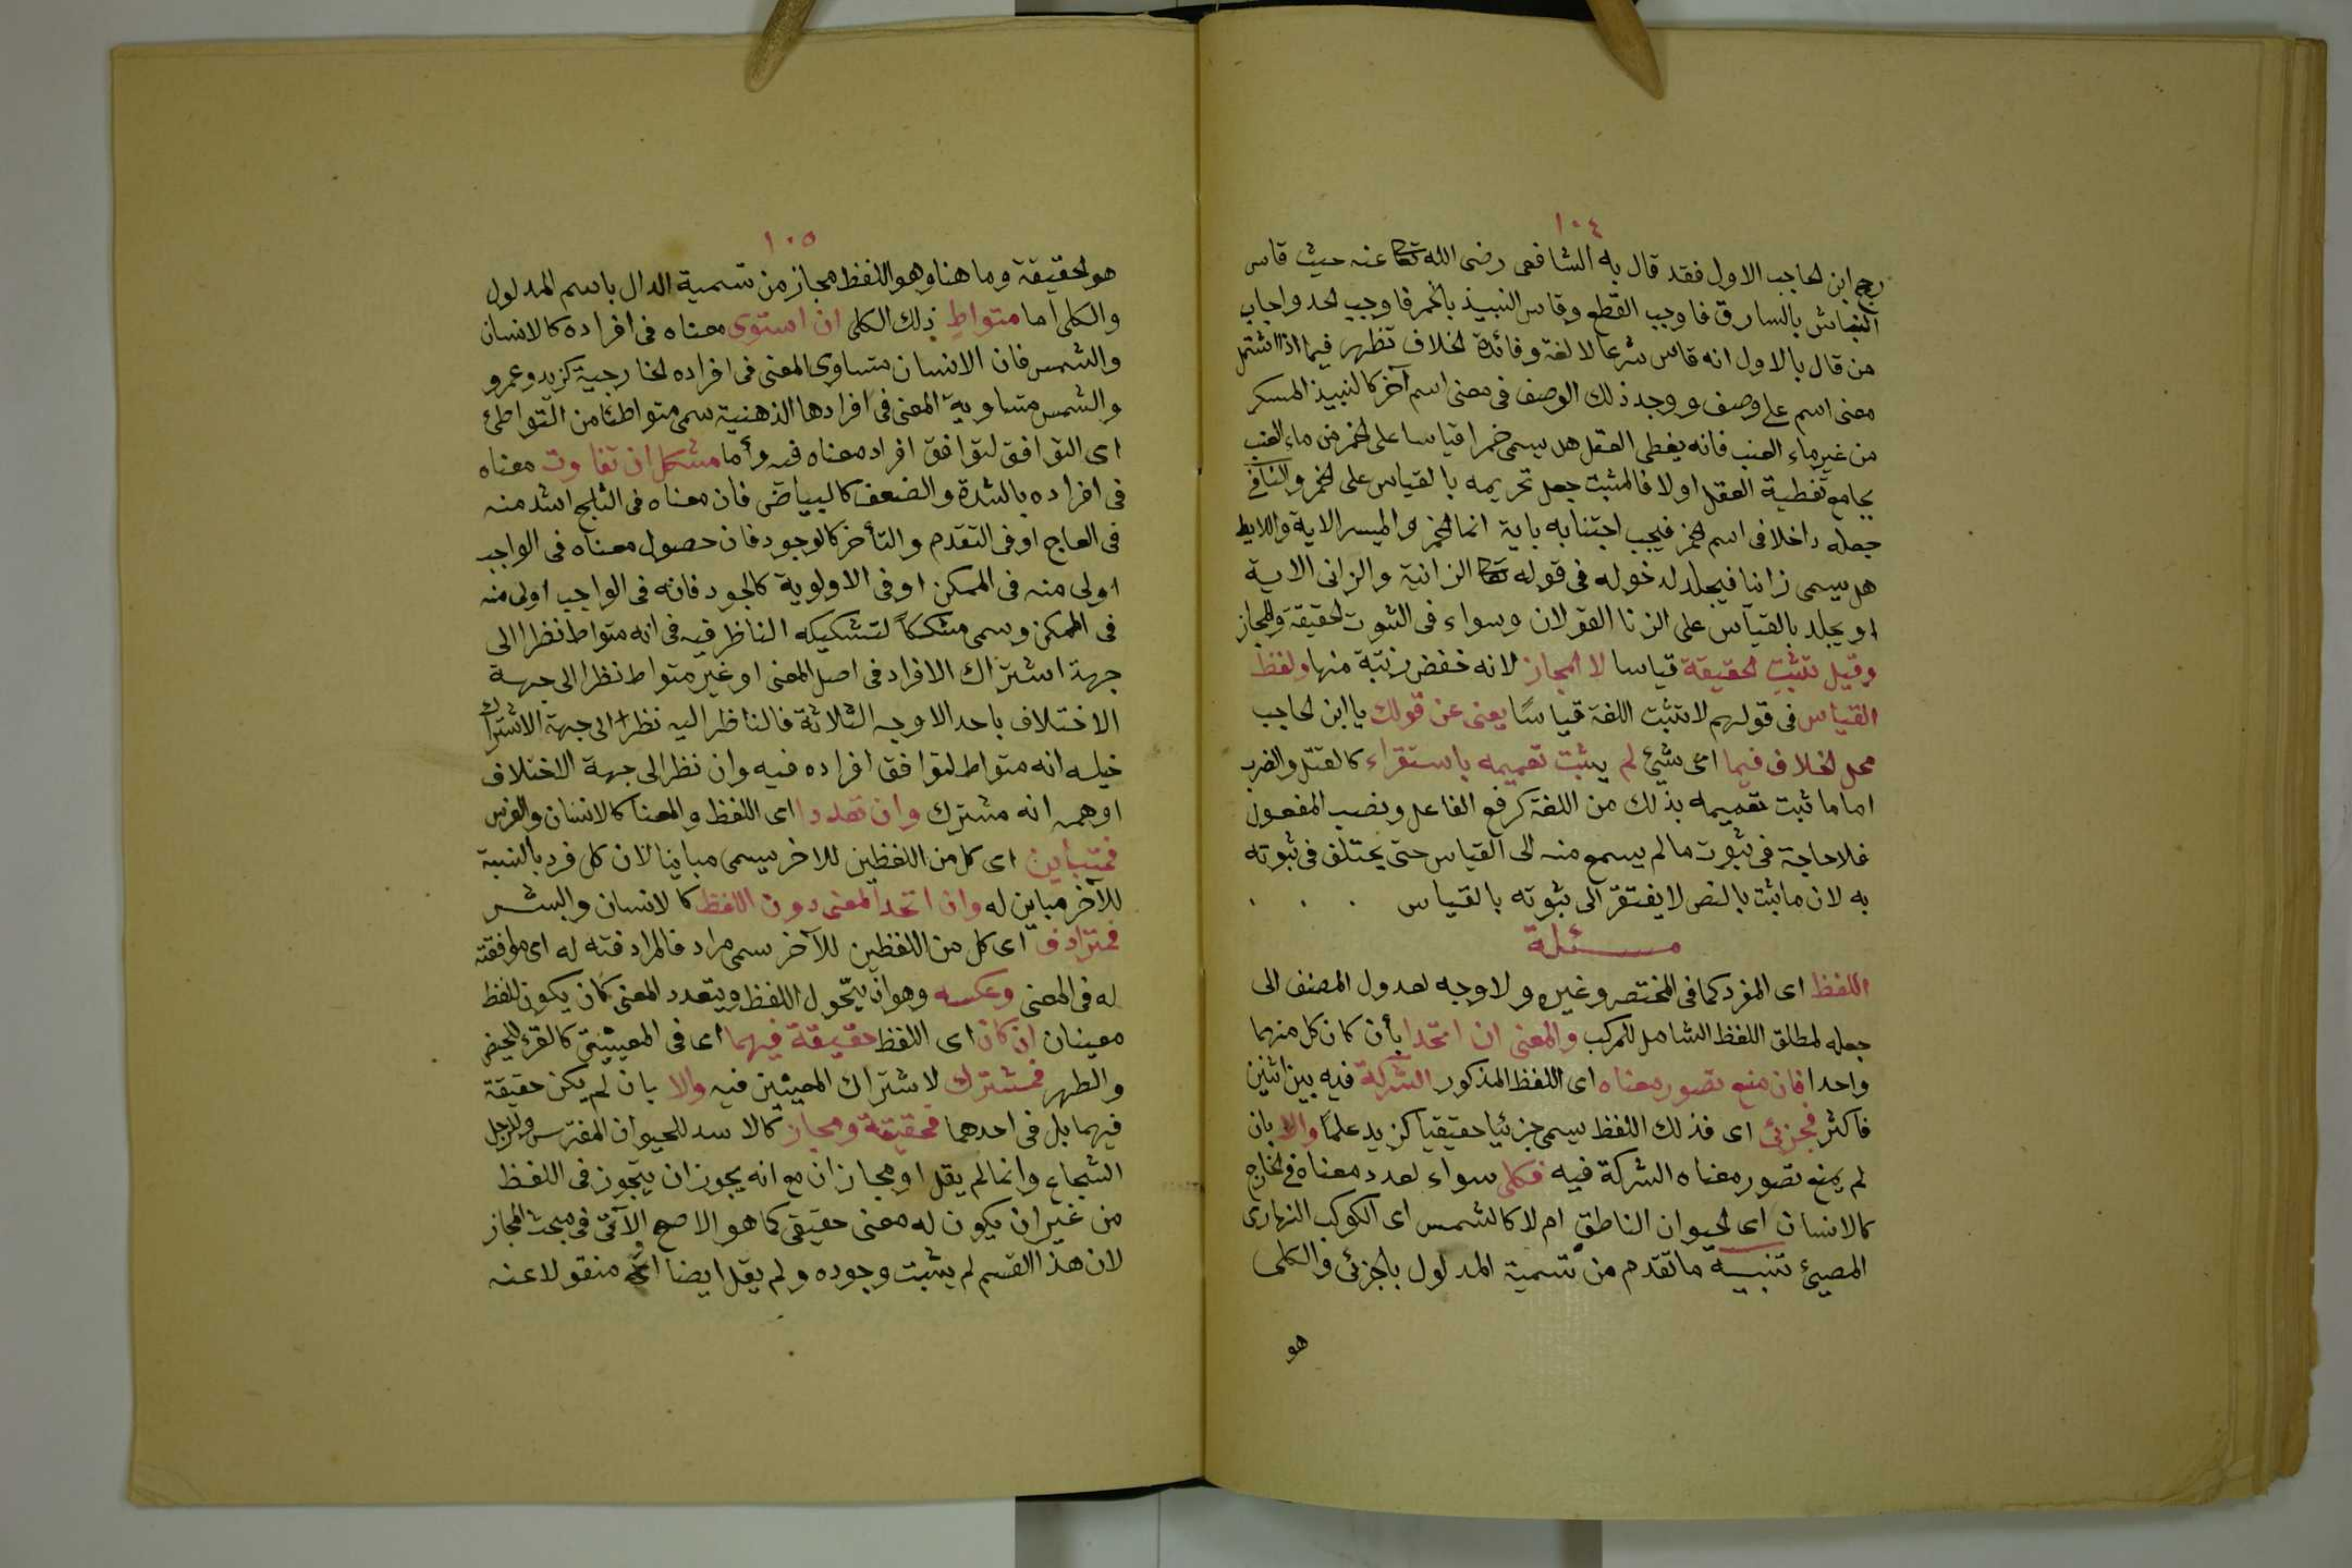 ١٠٤
رجح ابن الحاجب الاول فقد قال به الشافعى رضى الله تعا عنه حيث قاس
النباش بالسارق فاوجب القطع وقاس النبيذ بالخمر فاوجب الحد واجاب
من قال بالاول انه قاس شرعا لا لغة وفائدة الخلاف تظهر فيما اذا اشتمل
معنى اسم على وصف ووجد ذلك الوصف فى معنى اسم آخر كالنبيذ المسكر
من غير ماء العنب فانه يغطى العقل هل يسمى خمرا قياسا على الخمر من ماء العنب
بجامع تغطية العقل اولا فالمثبت جعل تحريمه بالقياس على الخمر والنافى
جعله داخلا فى اسم الخمر فيجب اجتنابه باية انما الخمر والميسر الاية واللايط
هل يسمى زانيا فيجلد لدخوله فى قوله تعا الزانية والزانى الاية
او يجلد بالقياس على الزنا القولان وسواء فى الثبوت الحقيقة والمجاز
وقيل تثبت الحقيقة قياسا لا المجاز لانه خفض رتبة منها ولفظ
القياس فى قولهم لا تثبت اللغة قياسًا يغنى عن قولك يا ابن الحاجب
محل الخلاف فيما اى شيئ لم يثبت تعميمه باستقراء كالقتل والضرب
اما ما ثبت تعميمه بذلك من اللغة كرفع الفاعل ونصب المفعول
فلا حاجة فى ثبوت ما لم يسمع منه الى القياس حتى يختلف فى ثبوته
به لان ما ثبت بالنص لا يفتقر الى ثبوته بالقياس . . .
مسئلة
اللفظ اى المفرد كما فى المختصر وغيره ولا وجه لعدول المصنف الى
جعله لمطلق اللفظ الشامل للمركب والمعنى ان اتحدا بأن كان كل منهما
واحدا فان منع تصور معناه اى اللفظ المذكور الشركة فيه بين اثنين
فاكثر فجزئى اى فذلك اللفظ يسمى جزئيا حقيقيا كزيد علمًا والا بان
لم يمنع تصور معناه الشركة فيه فكلى سواء تعدد معناه فى الخارج
كالانسان اى الحيوان الناطق ام لا كالشمس اى الكوكب النهارى
المضيئ تنبيه ما تقدم من تسمية المدلول بالجزئى والكلى
هو
١٠٥
هو الحقيقة وما هنا وهو اللفظ مجاز من تسمية الدال باسم المدلول
والكلى اما متواطٍ ذلك الكلى ان استوى معناه فى افراده كالانسان
والشمس فان الانسان متساوى المعنى فى افراده الخارجية كزيد وعمرو
والشمس متساوية المعنى فى افرادها الذهنية سمى متواطئا من التواطئ
اى التوافق لتوافق افراد معناه فيه وأما مشكك ان تفاوت معناه
فى افراده بالشدة والضعف كالبياض فان معناه فى الثلج اشد منه
فى العاج او فى التقدم والتأخر كالوجود فان حصول معناه فى الواجب
اولى منه فى الممكن او فى الاولوية كالجود فانه فى الواجب اولى منه
فى الممكن وسمى مشككًا لتشكيكه الناظر فيه فى انه متواط نظرا الى
جهة اشتراك الافراد فى اصل المعنى او غير متواط نظرا الى جهة
الاختلاف باحد الاوجه الثلاثة فالناظر اليه نظر الى جهة الاشتراك
خيله انه متواط لتوافق افراده فيه وان نظر الى جهة الاختلاف
اوهمه انه مشترك وان تعددا اى اللفظ والمعنا كالانسان والفرس
فمتباين اى كل من اللفظين للاخر يسمى مباينا لان كل فرد بالنسبة
للآخر مباين له وان اتحد المعنى دون اللفظ كالانسان والبشر
فمترادف اى كل من اللفظين للآخر سمى مرادفا لمرادفته له اى موافقته
له فى المعنى وعكسه وهو ان يتحول اللفظ ويتعدد المعنى كان يكون للفظ
معينان ان كان اى اللفظ حقيقة فيهما اى فى المعيينتى كالقرء للحيض
والطهر فمشترك لاشتراك المعيين فيه والا بان لم يكن حقيقة
فيهما بل فى احدهما فحقيقة ومجاز كالاسد للحيوان المفترس وللرجل
الشجاع وانما لم يقل او مجازان مع انه يجوز ان يتجوز فى اللفظ
من غير ان يكون له معنى حقيقى كما هو الاصح الآتى فى مبحث المجاز
لان هذا القسم لم يثبت وجوده ولم يقل ايضا منقولا عنه